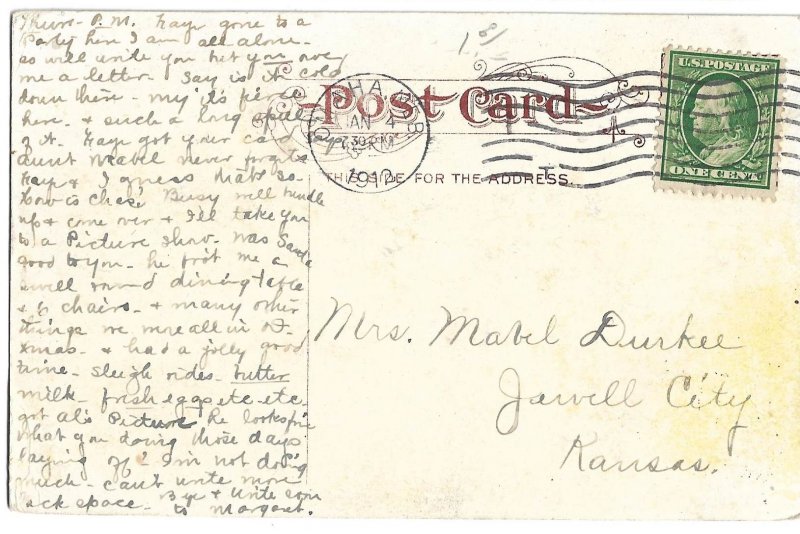 Thurs - P.M. Faye gone to a
Party here I am all alone -
so will write you but you owe
me a letter - Say is it cold
down there - my it's fierce
here - & such a long spell
of it. Faye got your card
aunt Mabel never forgets
Faye & I guess that's so -
How is Chas. Busy will bundle
up & come over & I'll take you
to a Picture Show. Was Santa
good to you - he brot me a
swell round dining table
& 6 chairs - & many other
things we were all in
Xmas - & had a jolly good
time - Sleigh rides - butter
milk - fresh eggs etc. etc.
got Al's Picture he looks fine
what you doing those days
laying off? I'm not doing
much - can't write more
lack space - Bye & write soon
to Margaret.
Post Card
OMAHA, NEBR.
JAN 4
7 30 PM
1912
THIS SIDE FOR THE ADDRESS.
U.S. POSTAGE
ONE CENT
Mrs. Mabel Durkee
Jewell City
Kansas.